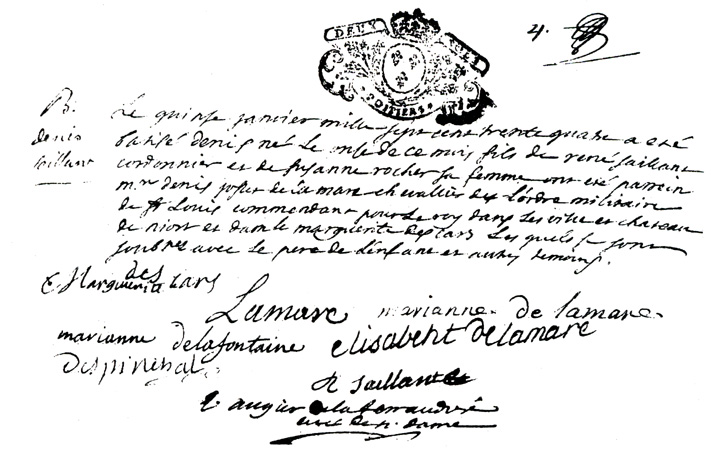 DEUX SOLS
POITIERS
4.
B.
denis
saillant
Le quinse janvier mille sept cent trente quatre a eté
batisé denis né le onse de ce mois fils de rené saillant
cordonnier et de susanne rocher sa femme ont eté parrein
mr. denis joseph de la mare chevallier de l'ordre militaire
de st Louis commendant pour le roy dans les ville et chateau
de niort et dame marguerite des cars les quels se sont
soubsnes avec le pere de l'enfant et autres temoins.
Marguerite des Cars
Lamare marianne de lamare
marianne delafontaine elisabeht delamare
Despineval
R saillant
augier de la terraudiere
curé de n. dame